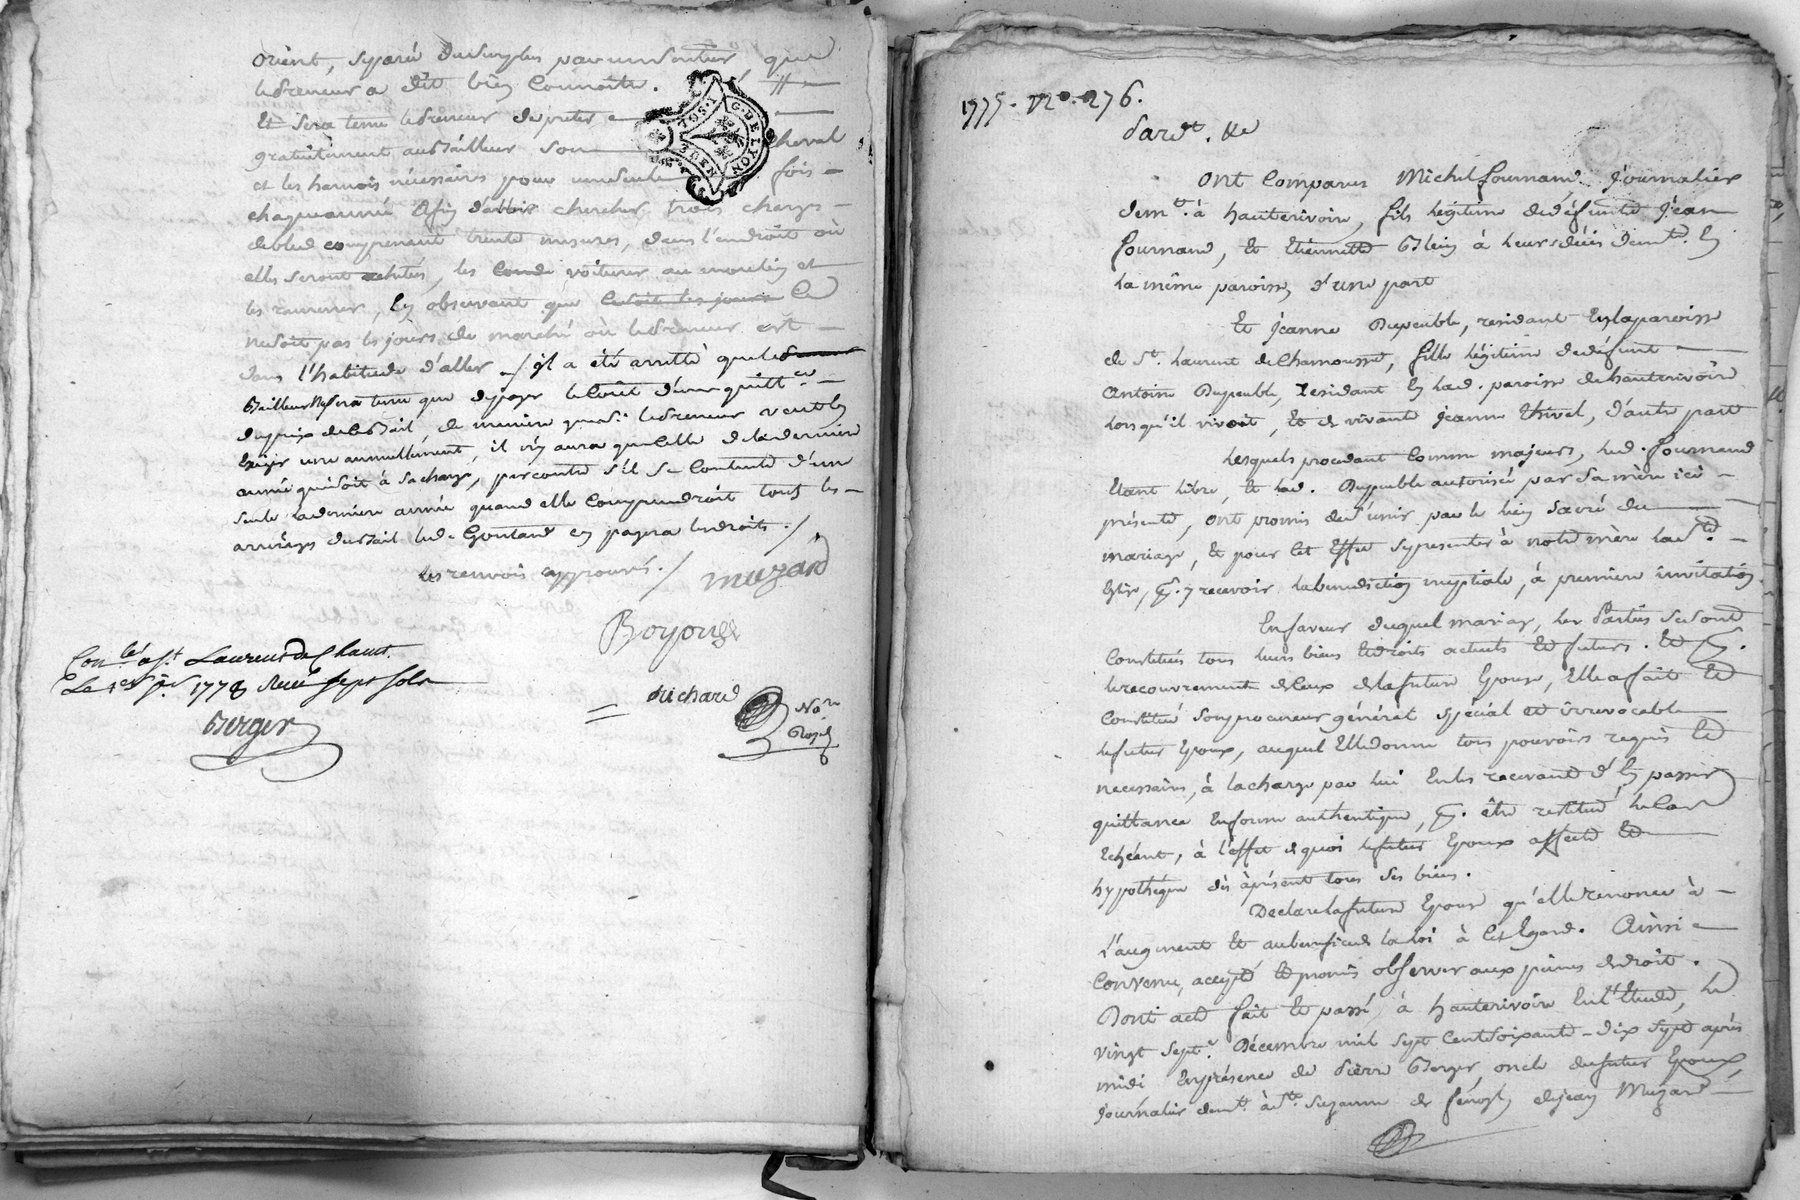 orient, separé du surplus par un sentier, que
le dt preneur a dit bien connoitre.
Et sera tenu le dt preneur de preter
gratuitement au Bailleur son cheval
et les harnois nécessaires pour une seule fois
chaque année afin d'aller chercher trois charges
de bled comprenant trente mesures, dans l'endroit où
elles seront achetées, les voiturer au moulin et
les ramener, En observant que ce
ne soit pas les jours de marché où le dt preneur est
dans l'habitude d'aller ./ il a été arretté que le d
Bailleur ne sera tenu que de payer le Coût d'une quittce
du prix de ce Bail, de maniere que si le dt preneur veut En
Exiger une annuellement, il n'y aura que Celle de la derniere
année qui soit à sa charge, par contre s'il se Contente d'une
seule la derniere année quand elle Comprendroit tous les
arrérages du Bail led. Goutard En payera les droits ./
les renvois approuvés ./ muzard
Boyoud
Conlé a St Laurent de Chamt.
Le 1er jr 1778 Reçu sept sols
Richard Nore Royal
Berger
G. DE LYON
1775. No. 276.
Pardt. &e
Ont Comparus Michel fournand Journalier
demt. à hauterivoire, fils légitime de défunts Jean
fournand, et Etiennette Blein à leurs décès demts. En
la même paroisse, d'une part
Et Jeanne Dupeuble, residant En la paroisse
de St. Laurent de Chamousset, fille légitime de défunt
Antoine Dupeuble, residant En lad. paroisse de hauterivoire
lorsqu'il vivoit, et de vivant Jeanne Thivel, d'autre part
Lesquels procedant Comme majeurs, led. fournand
Etant libre, et lad. Dupeuble autorisée par sa mère ici
présente, ont promis de s'unir par le lien sacré du
mariage, et pour cet Effet se présenter à notre mère la Ste.
Eglise, pr. y recevoir la bénédiction nuptiale, à première invitation.
En faveur duquel mariage, les Parties se sont
Constitués tous leurs biens et droits actuels et futurs. Et pr.
le recouvrement de Ceux de la future Epouse, Elle a fait et
Constitué son procureur général spécial et irrevocable
le futur Epoux, auquel Elle donne tous pouvoirs requis et
necessaires, à la charge par lui En les recevant d'En passer
quittance En forme authentique, pr. être restitué le Cas
Echéant, à l'effet de quoi le futur Epoux affecte et
hypothéque dès à présent tous ses biens.
Declare la future Epouse qu'elle renonce à
l'augment et au benefice de la loi à cet Egard. Ainsi
Convenu, accepté et promis observer aux peines de droit.
Dont acte fait et passé à hauterivoire En l'Etude, le
vingt sept. Décembre mil sept Cent soixante-dix sept après
midi En présence de Pierre Berger oncle du futur Epoux,
Journalier demt. à Ste. Suzanne de fénoyl, de Jean Muzard